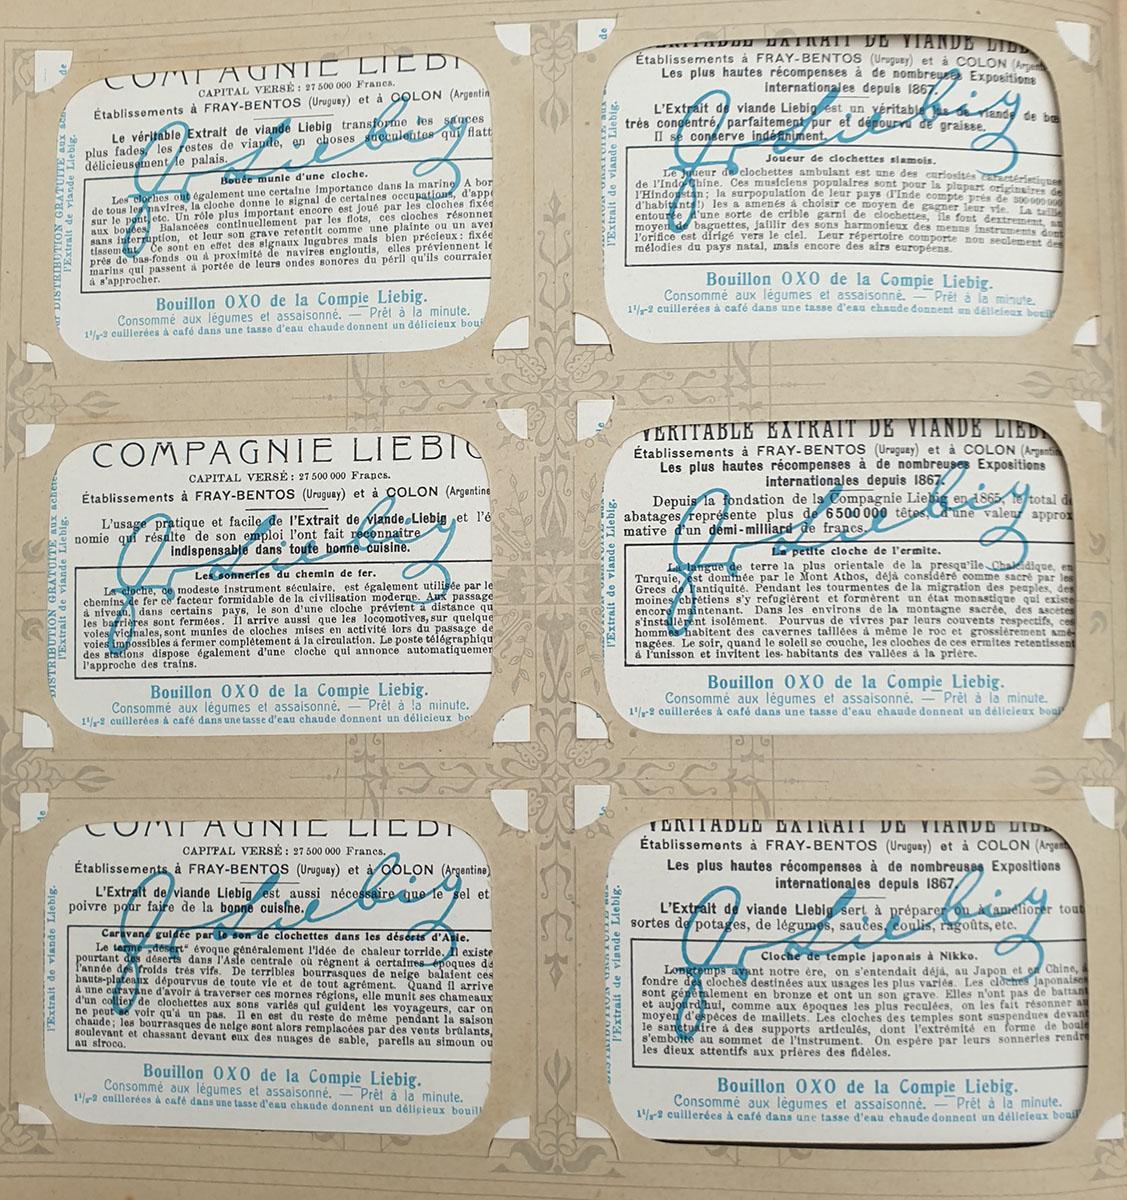 COMPAGNIE LIEBI
CAPITAL VERSÉ : 27 500 000 Francs.
Établissements à FRAY-BENTOS (Uruguay) et à COLON (Argentin
Le véritable Extrait de viande Liebig transforme les sauces
plus fades, les restes de viande, en choses succulentes qui flatt
délicieusement le palais.
Bouée munie d'une cloche.
Les cloches ont également une certaine importance dans la marine. A bor
de tous les navires, la cloche donne le signal de certaines occupations, d'app
sur pont, etc. Un rôle plus important encore est joué par les cloches fixée
aux bouées. Balancées continuellement par les flots, ces cloches résonner
sans interruption, et leur son grave retentit comme une plainte ou un aver
tissement. Ce sont en effet des signaux lugubres mais bien précieux: fixée
près de bas-fonds ou à proximité de navires engloutis, elles préviennent le
marins qui passent à portée de leurs ondes sonores du péril qu'ils courraier
à s'approcher.
Bouillon OXO de la Compie Liebig.
Consommé aux légumes et assaisonné. — Prêt à la minute.
1¹/₂-2 cuillerées à café dans une tasse d'eau chaude donnent un délicieux boui
DISTRIBUTION GRATUITE aux ach
l'Extrait de viande Liebig.
de
J. v. Liebig
VÉRITABLE EXTRAIT DE VIANDE LIEB
Établissements à FRAY-BENTOS (Uruguay) et à COLON (Argent
Les plus hautes récompenses à de nombreuses Expositions
internationales depuis 1867.
L'Extrait de viande Liebig est un véritable jus de viande de bœ
très concentré, parfaitement pur et dépourvu de graisse.
Il se conserve indéfiniment.
Joueur de clochettes siamois.
Le joueur de clochettes ambulant est une des curiosités caractéristiques
de l'Indo-Chine. Ces musiciens populaires sont pour la plupart originaires de
l'Hindoustan; la surpopulation de leur pays (l'Inde compte près de 300 000 000
d'habitants) les a amenés à choisir ce moyen de gagner leur vie. La taille
entourée d'une sorte de crible garni de clochettes, ils font dextrement, au
moyen de baguettes, jaillir des sons harmonieux des menus instruments dont
l'orifice est dirigé vers le ciel. Leur répertoire comporte non seulement des
mélodies du pays natal, mais encore des airs européens.
Bouillon OXO de la Compie Liebig.
Consommé aux légumes et assaisonné. — Prêt à la minute.
1¹/₂-2 cuillerées à café dans une tasse d'eau chaude donnent un délicieux bouil
l'Extrait de viande Liebig.
de
J. v. Liebig
COMPAGNIE LIEBIG
CAPITAL VERSÉ : 27 500 000 Francs.
Établissements à FRAY-BENTOS (Uruguay) et à COLON (Argentine
L'usage pratique et facile de l'Extrait de viande Liebig et l'é
nomie qui résulte de son emploi l'ont fait reconnaître
indispensable dans toute bonne cuisine.
Les sonneries du chemin de fer.
La cloche, ce modeste instrument séculaire, est également utilisée par le
chemins de fer ce facteur formidable de la civilisation moderne. Aux passage
à niveau dans certains pays, le son d'une cloche prévient à distance qu
les barrières sont fermées. Il arrive aussi que les locomotives, sur quelque
voies vicinales, sont munies de cloches mises en activité lors du passage de
voies impossibles à fermer complètement à la circulation. Le poste télégraphiqu
des stations dispose également d'une cloche qui annonce automatiquemer
l'approche des trains.
Bouillon OXO de la Compie Liebig.
Consommé aux légumes et assaisonné. — Prêt à la minute.
1¹/₂-2 cuillerées à café dans une tasse d'eau chaude donnent un délicieux bo
DISTRIBUTION GRATUITE aux achete
l'Extrait de viande Liebig.
de
J. v. Liebig
VÉRITABLE EXTRAIT DE VIANDE LIEBI
Établissements à FRAY-BENTOS (Uruguay) et à COLON (Argentine
Les plus hautes récompenses à de nombreuses Expositions
internationales depuis 1867.
Depuis la fondation de la Compagnie Liebig en 1865, le total d
abatages représente plus de 6 500 000 têtes, d'une valeur approx
mative d'un demi-milliard de francs.
La petite cloche de l'ermite.
La langue de terre la plus orientale de la presqu'île Chalcidique, en
Turquie, est dominée par le Mont Athos, déjà considéré comme sacré par les
Grecs de l'antiquité. Pendant les tourmentes de la migration des peuples, des
moines chrétiens s'y refugièrent et formèrent un état monastique qui existe
encore maintenant. Dans les environs de la montagne sacrée, des ascètes
s'installèrent isolément. Pourvus de vivres par leurs couvents respectifs, ces
hommes habitent des cavernes taillées à même le roc et grossièrement amé-
nagées. Le soir, quand le soleil se couche, les cloches de ces ermites retentissent
à l'unisson et invitent les habitants des vallées à la prière.
Bouillon OXO de la Compie Liebig.
Consommé aux légumes et assaisonné. — Prêt à la minute.
1¹/₂-2 cuillerées à café dans une tasse d'eau chaude donnent un délicieux boui
l'Extrait de viande Liebig.
J. v. Liebig
COMPAGNIE LIEBI
CAPITAL VERSÉ : 27 500 000 Francs.
Établissements à FRAY-BENTOS (Uruguay) et à COLON (Argentine)
L'Extrait de viande Liebig est aussi nécessaire que le sel et
poivre pour faire de la bonne cuisine.
Caravane guidée par le son de clochettes dans les déserts d'Asie.
Le terme „désert“ évoque généralement l'idée de chaleur torride. Il existe
pourtant des déserts dans l'Asie centrale où règnent à certaines époques de
l'année des froids très vifs. De terribles bourrasques de neige balaient ces
hauts-plateaux dépourvus de toute vie et de tout agrément. Quand il arrive
à une caravane d'avoir à traverser ces mornes régions, elle munit ses chameaux
d'un collier de clochettes aux sons variés qui guident les voyageurs, car on
ne peut se voir qu'à un pas. Il en est du reste de même pendant la saison
chaude; les bourrasques de neige sont alors remplacées par des vents brûlants,
soulevant et chassant devant eux des nuages de sable, pareils au simoun ou
au siroco.
Bouillon OXO de la Compie Liebig.
Consommé aux légumes et assaisonné. — Prêt à la minute.
1¹/₂-2 cuillerées à café dans une tasse d'eau chaude donnent un délicieux bouil
l'Extrait de viande Liebig.
de
J. v. Liebig
VÉRITABLE EXTRAIT DE VIANDE LIEB
Établissements à FRAY-BENTOS (Uruguay) et à COLON (Argent
Les plus hautes récompenses à de nombreuses Expositions
internationales depuis 1867.
L'Extrait de viande Liebig sert à préparer ou à améliorer tout
sortes de potages, de légumes, sauces, coulis, ragoûts, etc.
Cloche de temple japonais à Nikko.
Longtemps avant notre ère, on s'entendait déjà, au Japon et en Chine, à
fondre des cloches destinées aux usages les plus variés. Les cloches japonaises
sont généralement en bronze et ont un son grave. Elles n'ont pas de battant
et aujourd'hui, comme aux époques les plus reculées, on les fait résonner au
moyen d'espèces de maillets. Les cloches des temples sont suspendues devant
le sanctuaire à des supports articulés, dont l'extrémité en forme de boule
s'emboîte au sommet de l'instrument. On espère par leurs sonneries rendre
les dieux attentifs aux prières des fidèles.
Bouillon OXO de la Compie Liebig.
Consommé aux légumes et assaisonné. — Prêt à la minute.
1¹/₂-2 cuillerées à café dans une tasse d'eau chaude donnent un délicieux bouil
l'Extrait de viande Liebig.
de
J. v. Liebig